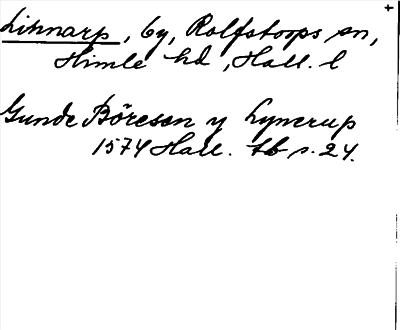 Linnarp, by, Rolfstorps sn,
Himle hd, Hall. l
Gunde Böresen y Lynerup
1574 Hall. tb s. 24.